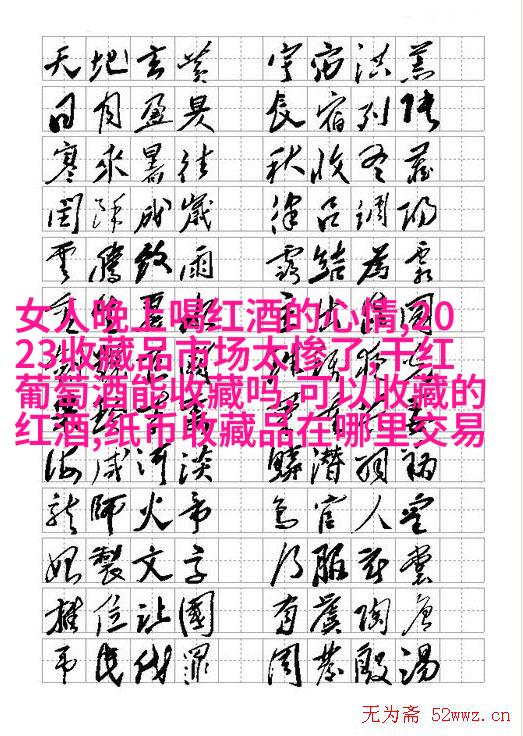 天地玄黄 宇宙洪荒
日月盈昃 辰宿列张
寒来暑往 秋收冬藏
闰馀成岁 律吕调阳
云腾致雨 露结为霜
女人晚上喝红酒的心情,20
23收藏品市场太惨了,干红
葡萄酒能收藏吗,可以收藏的
红酒,纸币收藏品在哪里交易
海咸河淡 鳞潜羽翔
龙师火帝 鸟官人皇
始製文字 乃服衣裳
推位让國 有虞陶唐
吊民伐罪 周发殷汤
无为斋 52wwz.cn